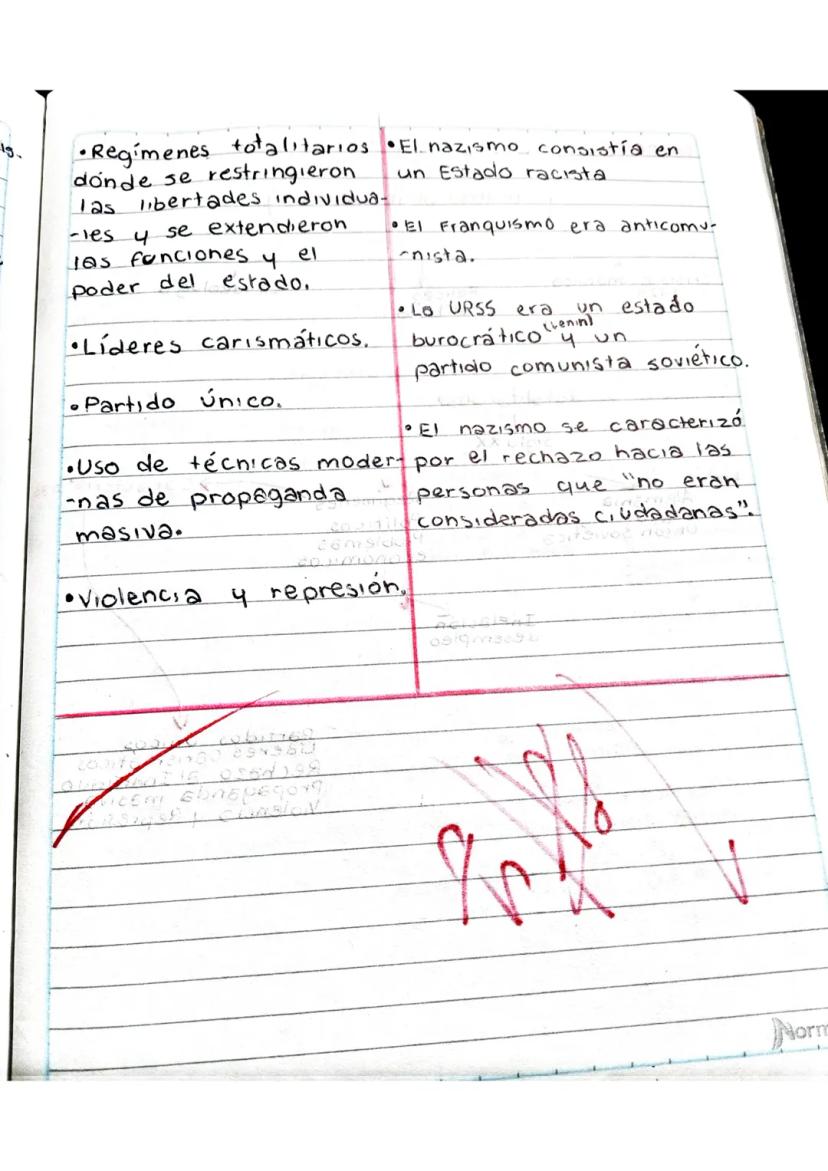 •Regímenes totalitarios
donde se restringieron
las libertades individua-
-les y se extendieron
las funciones y el
poder del estado.
•Líderes carismáticos.
•Partido único.
•Uso de técnicas moder-
-nas de propaganda
masiva.
•Violencia y represión.
•El nazismo consistía en
un Estado racista
•El Franquismo era anticomu-
-nista.
•La URSS era un estado
burocrático (Lenin) y un
partido comunista soviético.
•El nazismo se caracterizó
por el rechazo hacia las
personas que "no eran
consideradas ciudadanas".
Norm